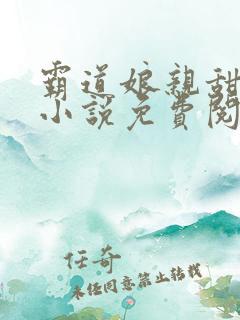 霸道娘親甜
小說免費閱
任奇
未经同意禁止转载